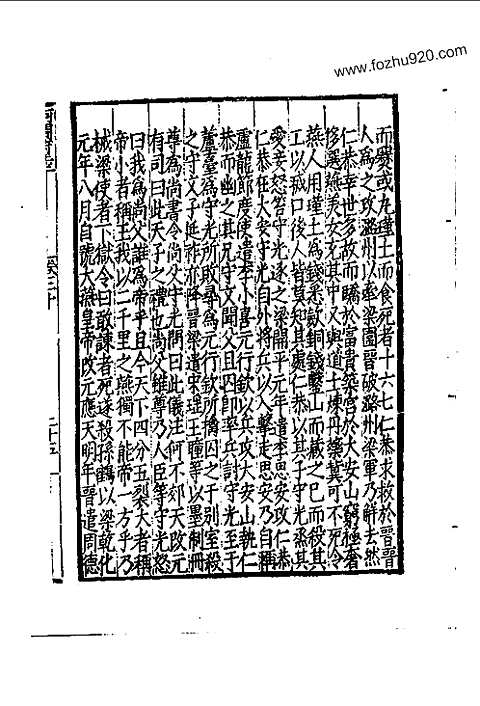 www.fozhu920.com
而爨或丸瑾土而食死者十六七仁恭求救於晉晉
人爲之攻潞州以牽梁圍晉破潞州梁軍乃解去然
仁恭幸世多故而驕於富貴築宮於大安山窮極奢
侈選燕美女充其中又與道士煉丹藥冀可不死令
燕人用瑾土爲錢悉歛銅錢鑿山而藏之已而殺其
工以滅口後人皆莫知其處仁恭以其子守光烝其
愛妾怒笞守光逐之梁開平元年遣李思安攻仁恭
仁恭在大安守光自外將兵以入擊走思安乃自稱
盧龍節度使遣李小喜元行欽以兵攻大安山執仁
恭而幽之其兄守文聞父且囚即率兵討守光至于
蘆臺爲守光所敗尋爲元行欽所擒囚之于别室殺
之守文子延祚亦降晉梁遣宋瑾王瞳等以墨制冊
尊爲尚書令尚父守光問曰此儀注何不郊天改元
有司曰此天子之禮也尚父雖尊乃人臣等守光怒
曰我爲尚父誰爲帝乎且今天下四分五裂大者稱
帝小者稱王我以二千里之燕獨不能帝一方乎乃
械梁使者下獄令曰敢諫者死遂殺孫鶴以梁乾化
元年八月自號大燕皇帝改元應天明年晉遣周德